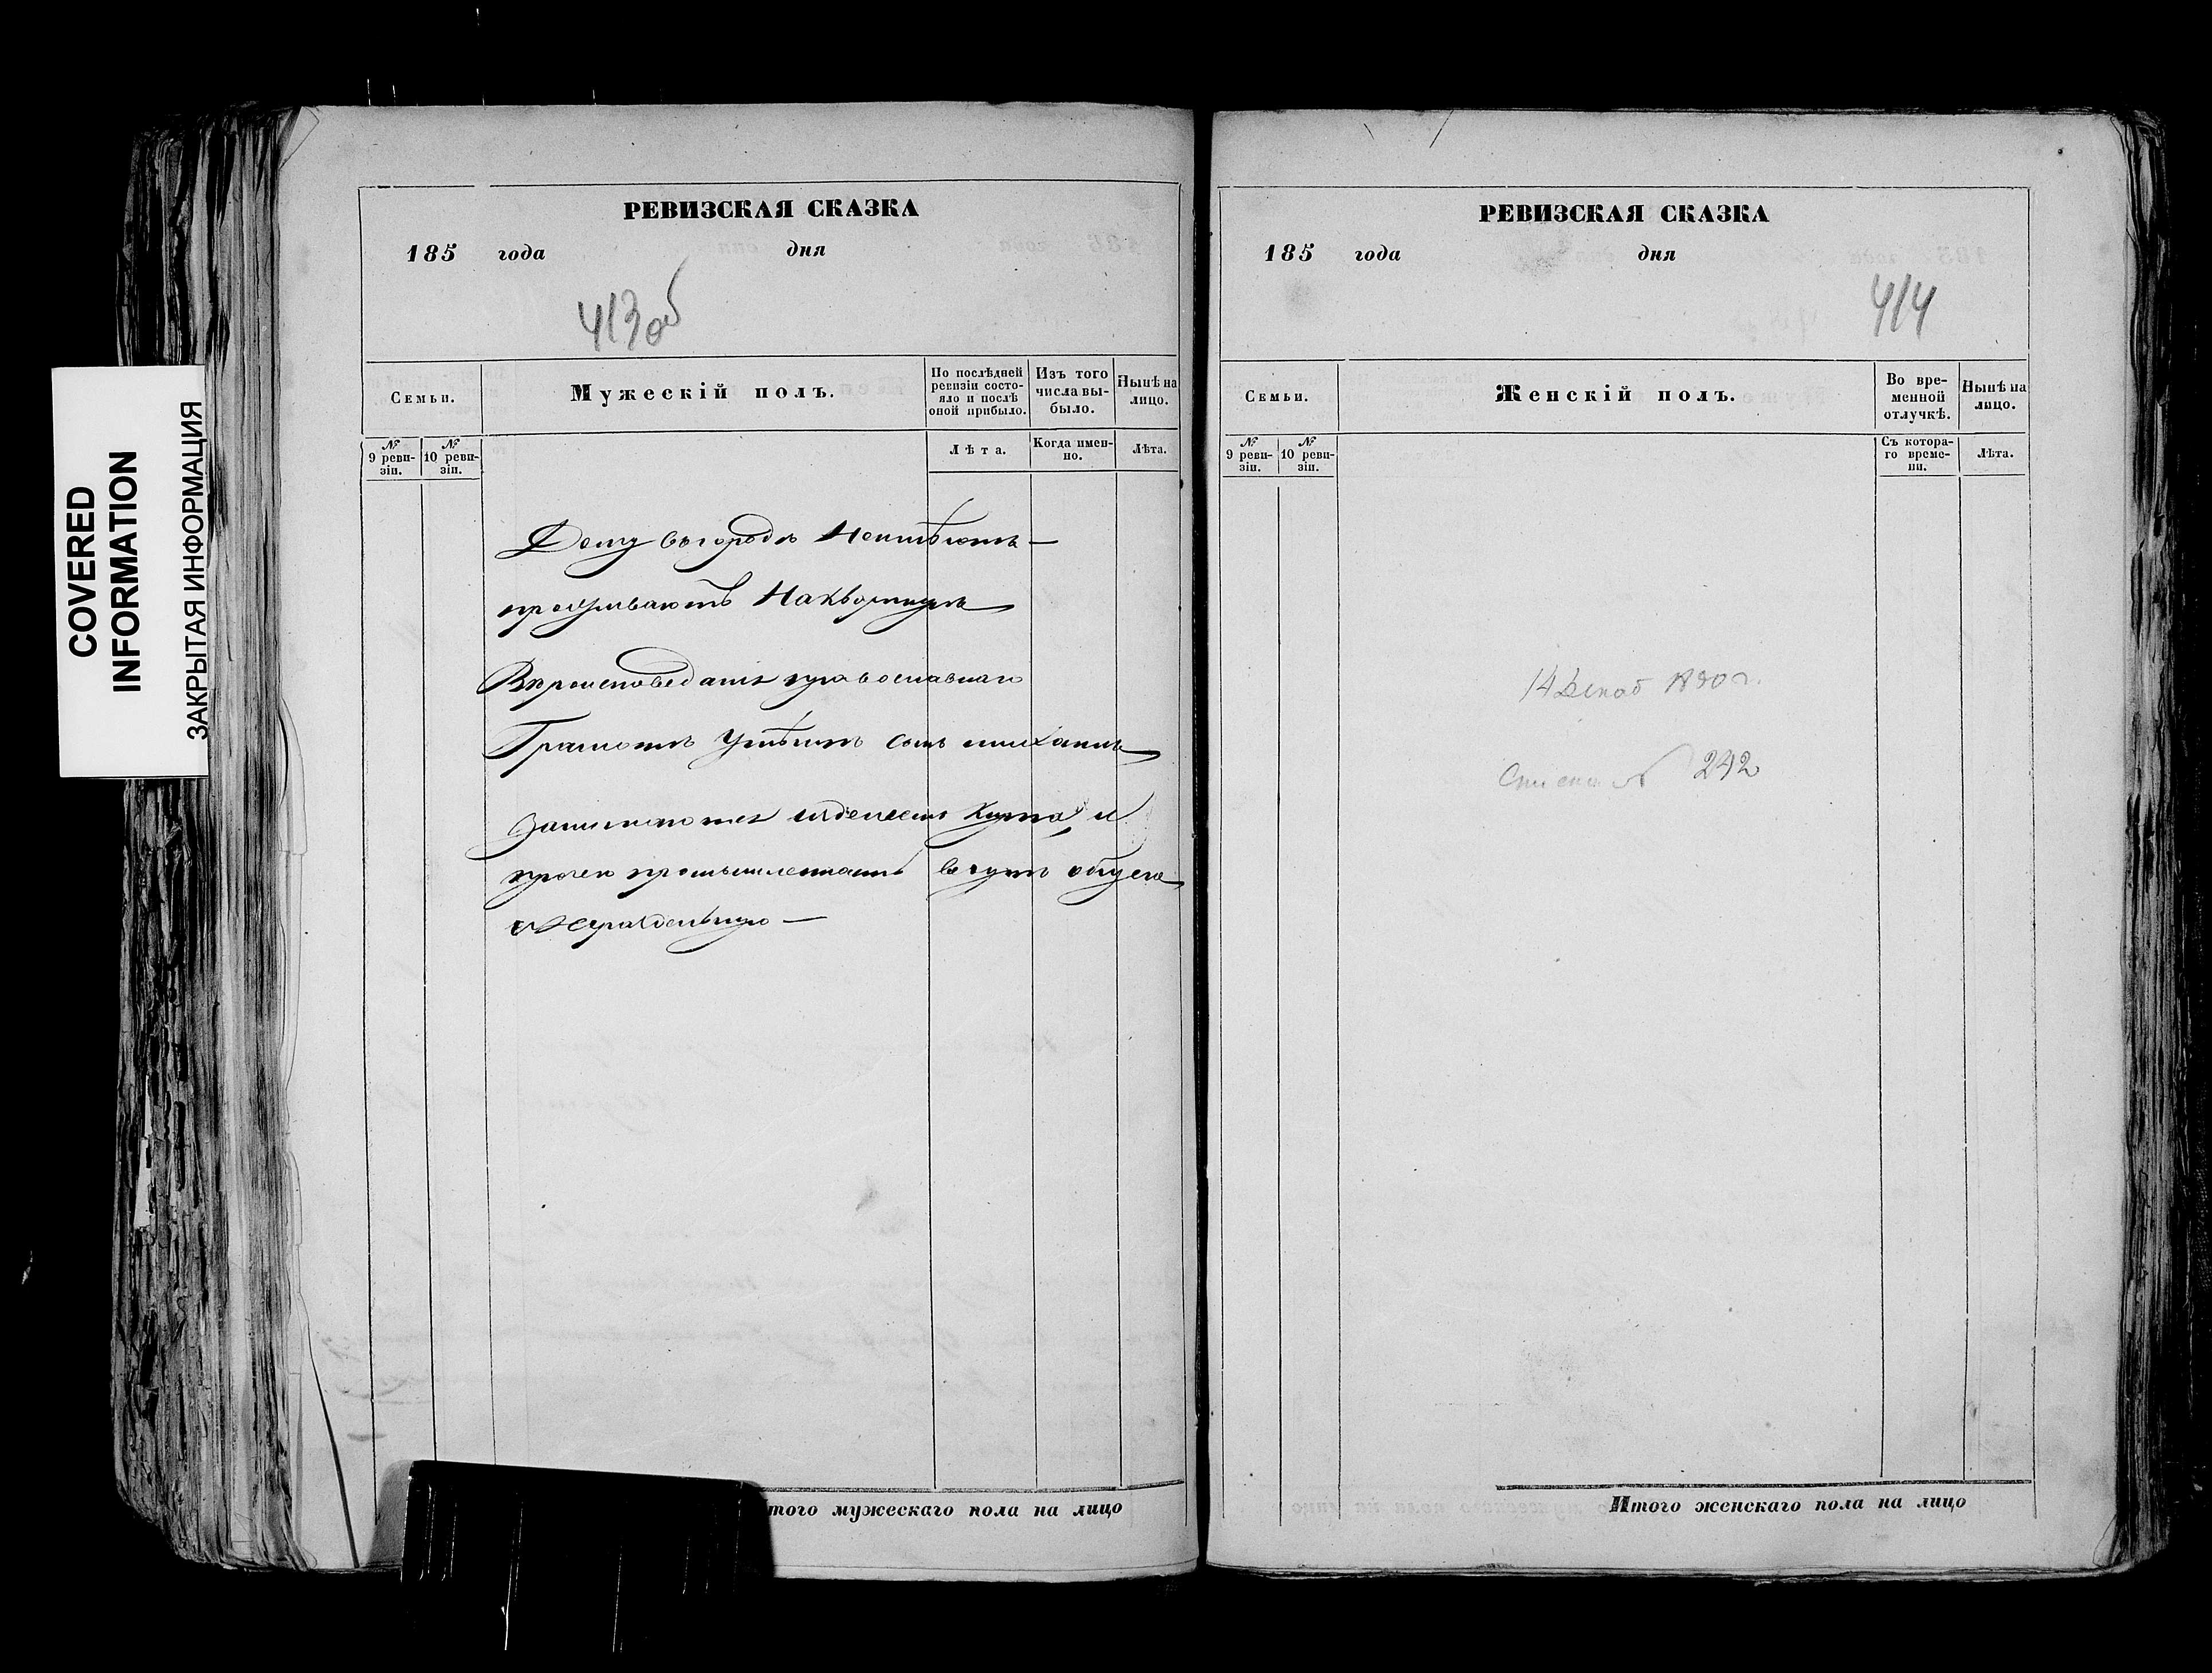 COVERED
INFORMATION
ЗАКРЫТАЯ ИНФОРМАЦИЯ
РЕВИЗСКАЯ СКАЗКА
185 года дня
413 об
Семьи.
Мужескій полъ.
По послѣдней
ревизіи состо-
яло и послѣ
оной прибыло.
Изъ того
числа вы-
было.
Нынѣ на
лицо.
№
9 реви-
зіи.
№
10 реви-
зіи.
Лѣта.
Когда имен-
но.
Лѣта.
Дому въ городѣ Неимѣютъ —
проживаютъ На квартирѣ
Вѣроисповеданія православнаго
Грамотѣ Умѣютъ
занимаются и
прочею промышленностію
Нераздельную —
Итого мужескаго пола на лицо
РЕВИЗСКАЯ СКАЗКА
185 года дня
414
Семьи.
Женскій полъ.
Во вре-
менной
отлучкѣ.
Нынѣ на
лицо.
№
9 реви-
зіи.
№
10 реви-
зіи.
Съ котора-
го време-
ни.
Лѣта.
14 Декаб
№ 242
Итого женскаго пола на лицо